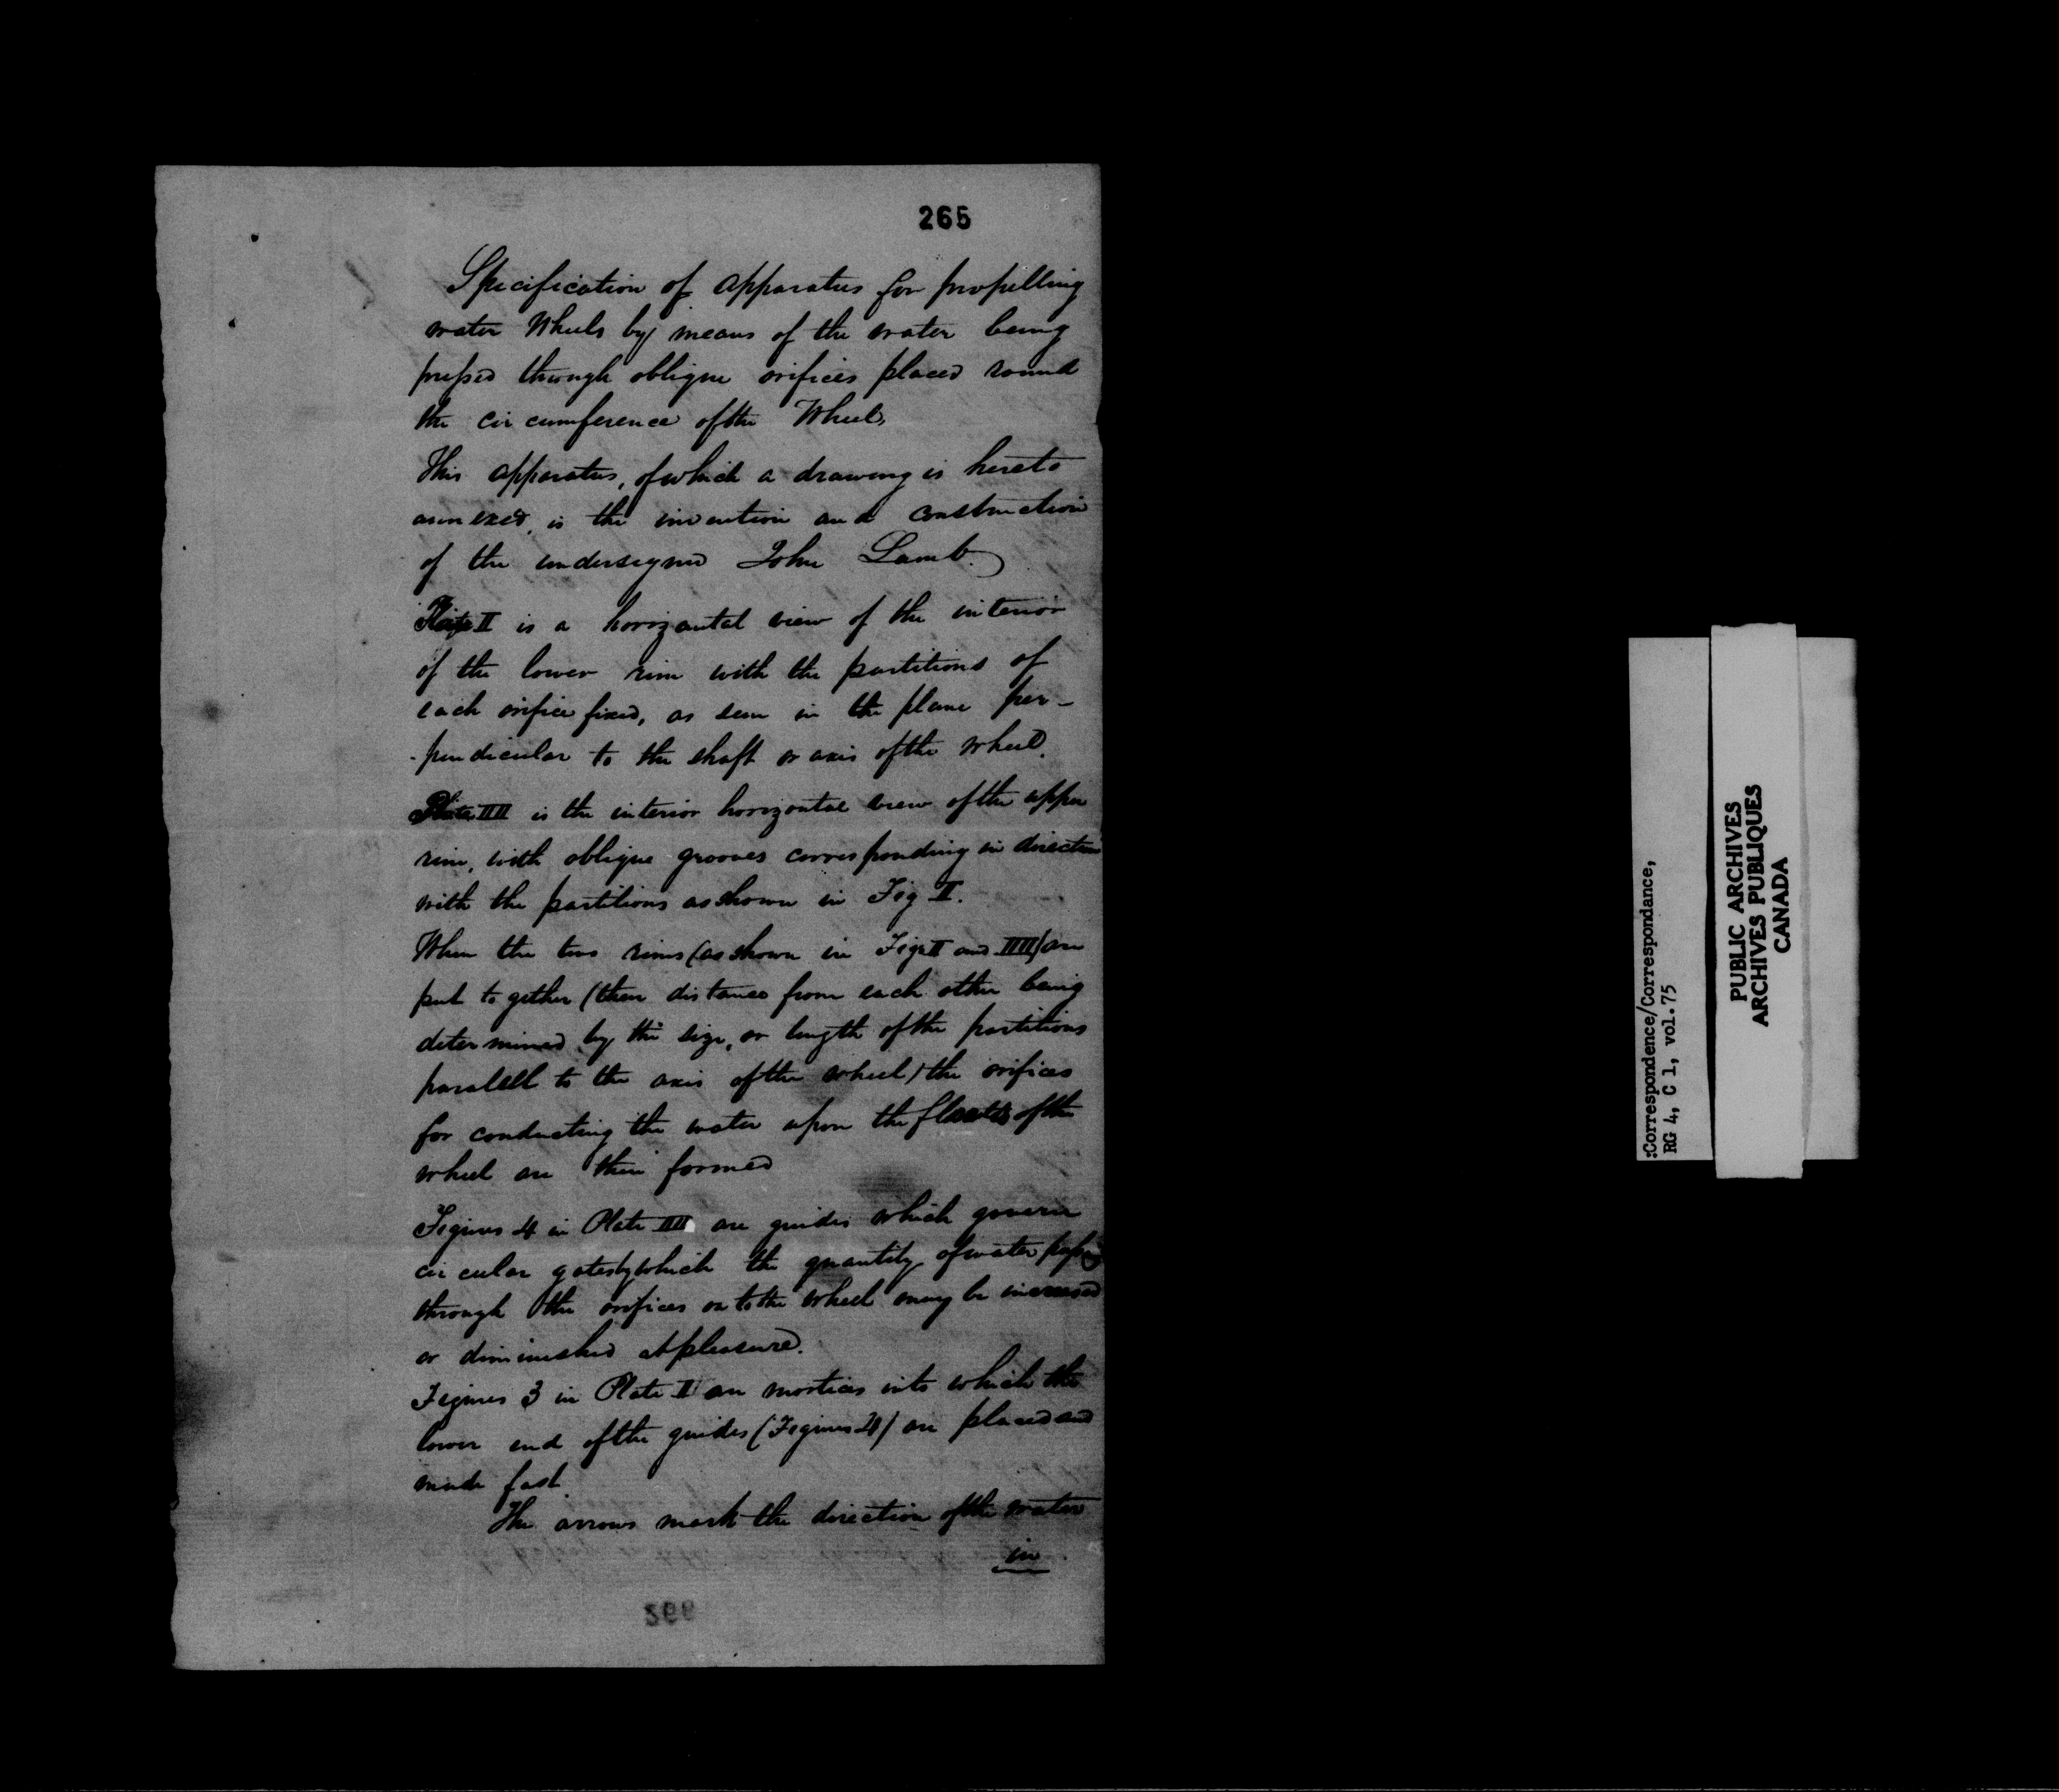 265
Specification of apparatus for propelling
water Wheels by means of the water being
pressed through oblique orifices placed round
the circumference of the Wheel.
This apparatus, of which a drawing is hereto
annexed, is the invention and construction
of the undersigned John Lamb.
Plate II is a horizontal view of the interior
of the lower rim with the partitions of
each orifice fixed, as seen in the plane per-
-pendicular to the shaft or axis of the wheel.
Plate IIII is the interior horizontal view of the upper
rim, with oblique grooves corresponding in direction
with the partitions as shown in Fig II.
When the two rims (as shown in Figs II and IIII) are
put together (their distance from each other being
determined by the size, or length of the partitions
paralell to the axis of the wheel) the orifices
for conducting the water upon the floats of the
wheel are then formed
Figures 4 in Plate IIII are guides which govern
circular gates by which the quantity of water passing
through the orifices on to the wheel may be increased
or diminished at pleasure.
Figures 3 in Plate II are mortices into which the
lower end of the guides (Figures 4) are placed and
made fast.
The arrows mark the direction of the water
in
266
:Correspondence/Correspondance,
RG 4, C 1, vol.75
PUBLIC ARCHIVES
ARCHIVES PUBLIQUES
CANADA